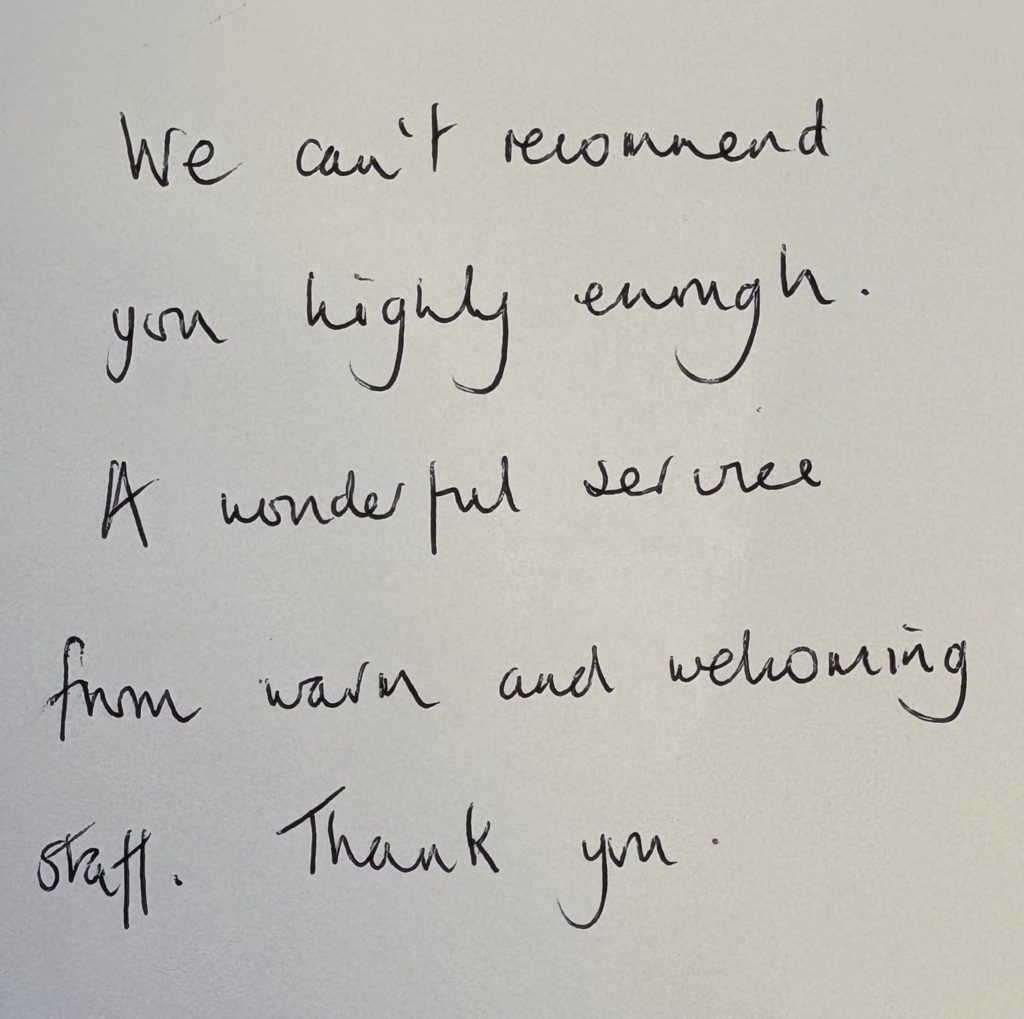 We can't recommend
you highly enough.
A wonderful service
from warm and welcoming
staff. Thank you.